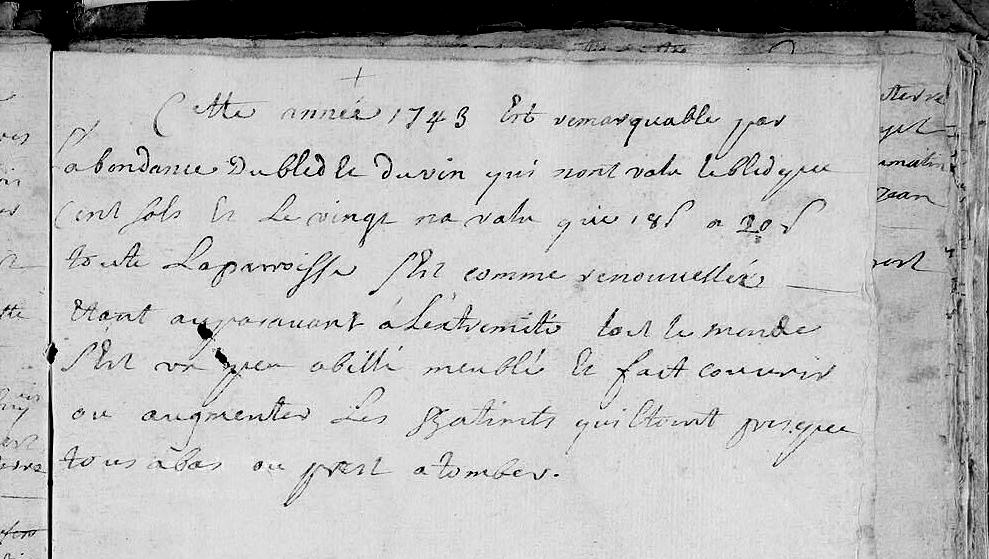 +
Cette année 1743 Est remarquable par
L'abondance Du bled Et du vin qui nont valu le bled que
Cent sols Et Le vingt na valu que 18s a 20s
toute Laparroisse s'Est comme renouvellée
Etant auparavant à L'extremité tout le monde
s'Est un peu abillé meublé Et fait couvrir
ou augmenter Les Batiments qui Etoient presque
tous à bas ou prest a tomber.